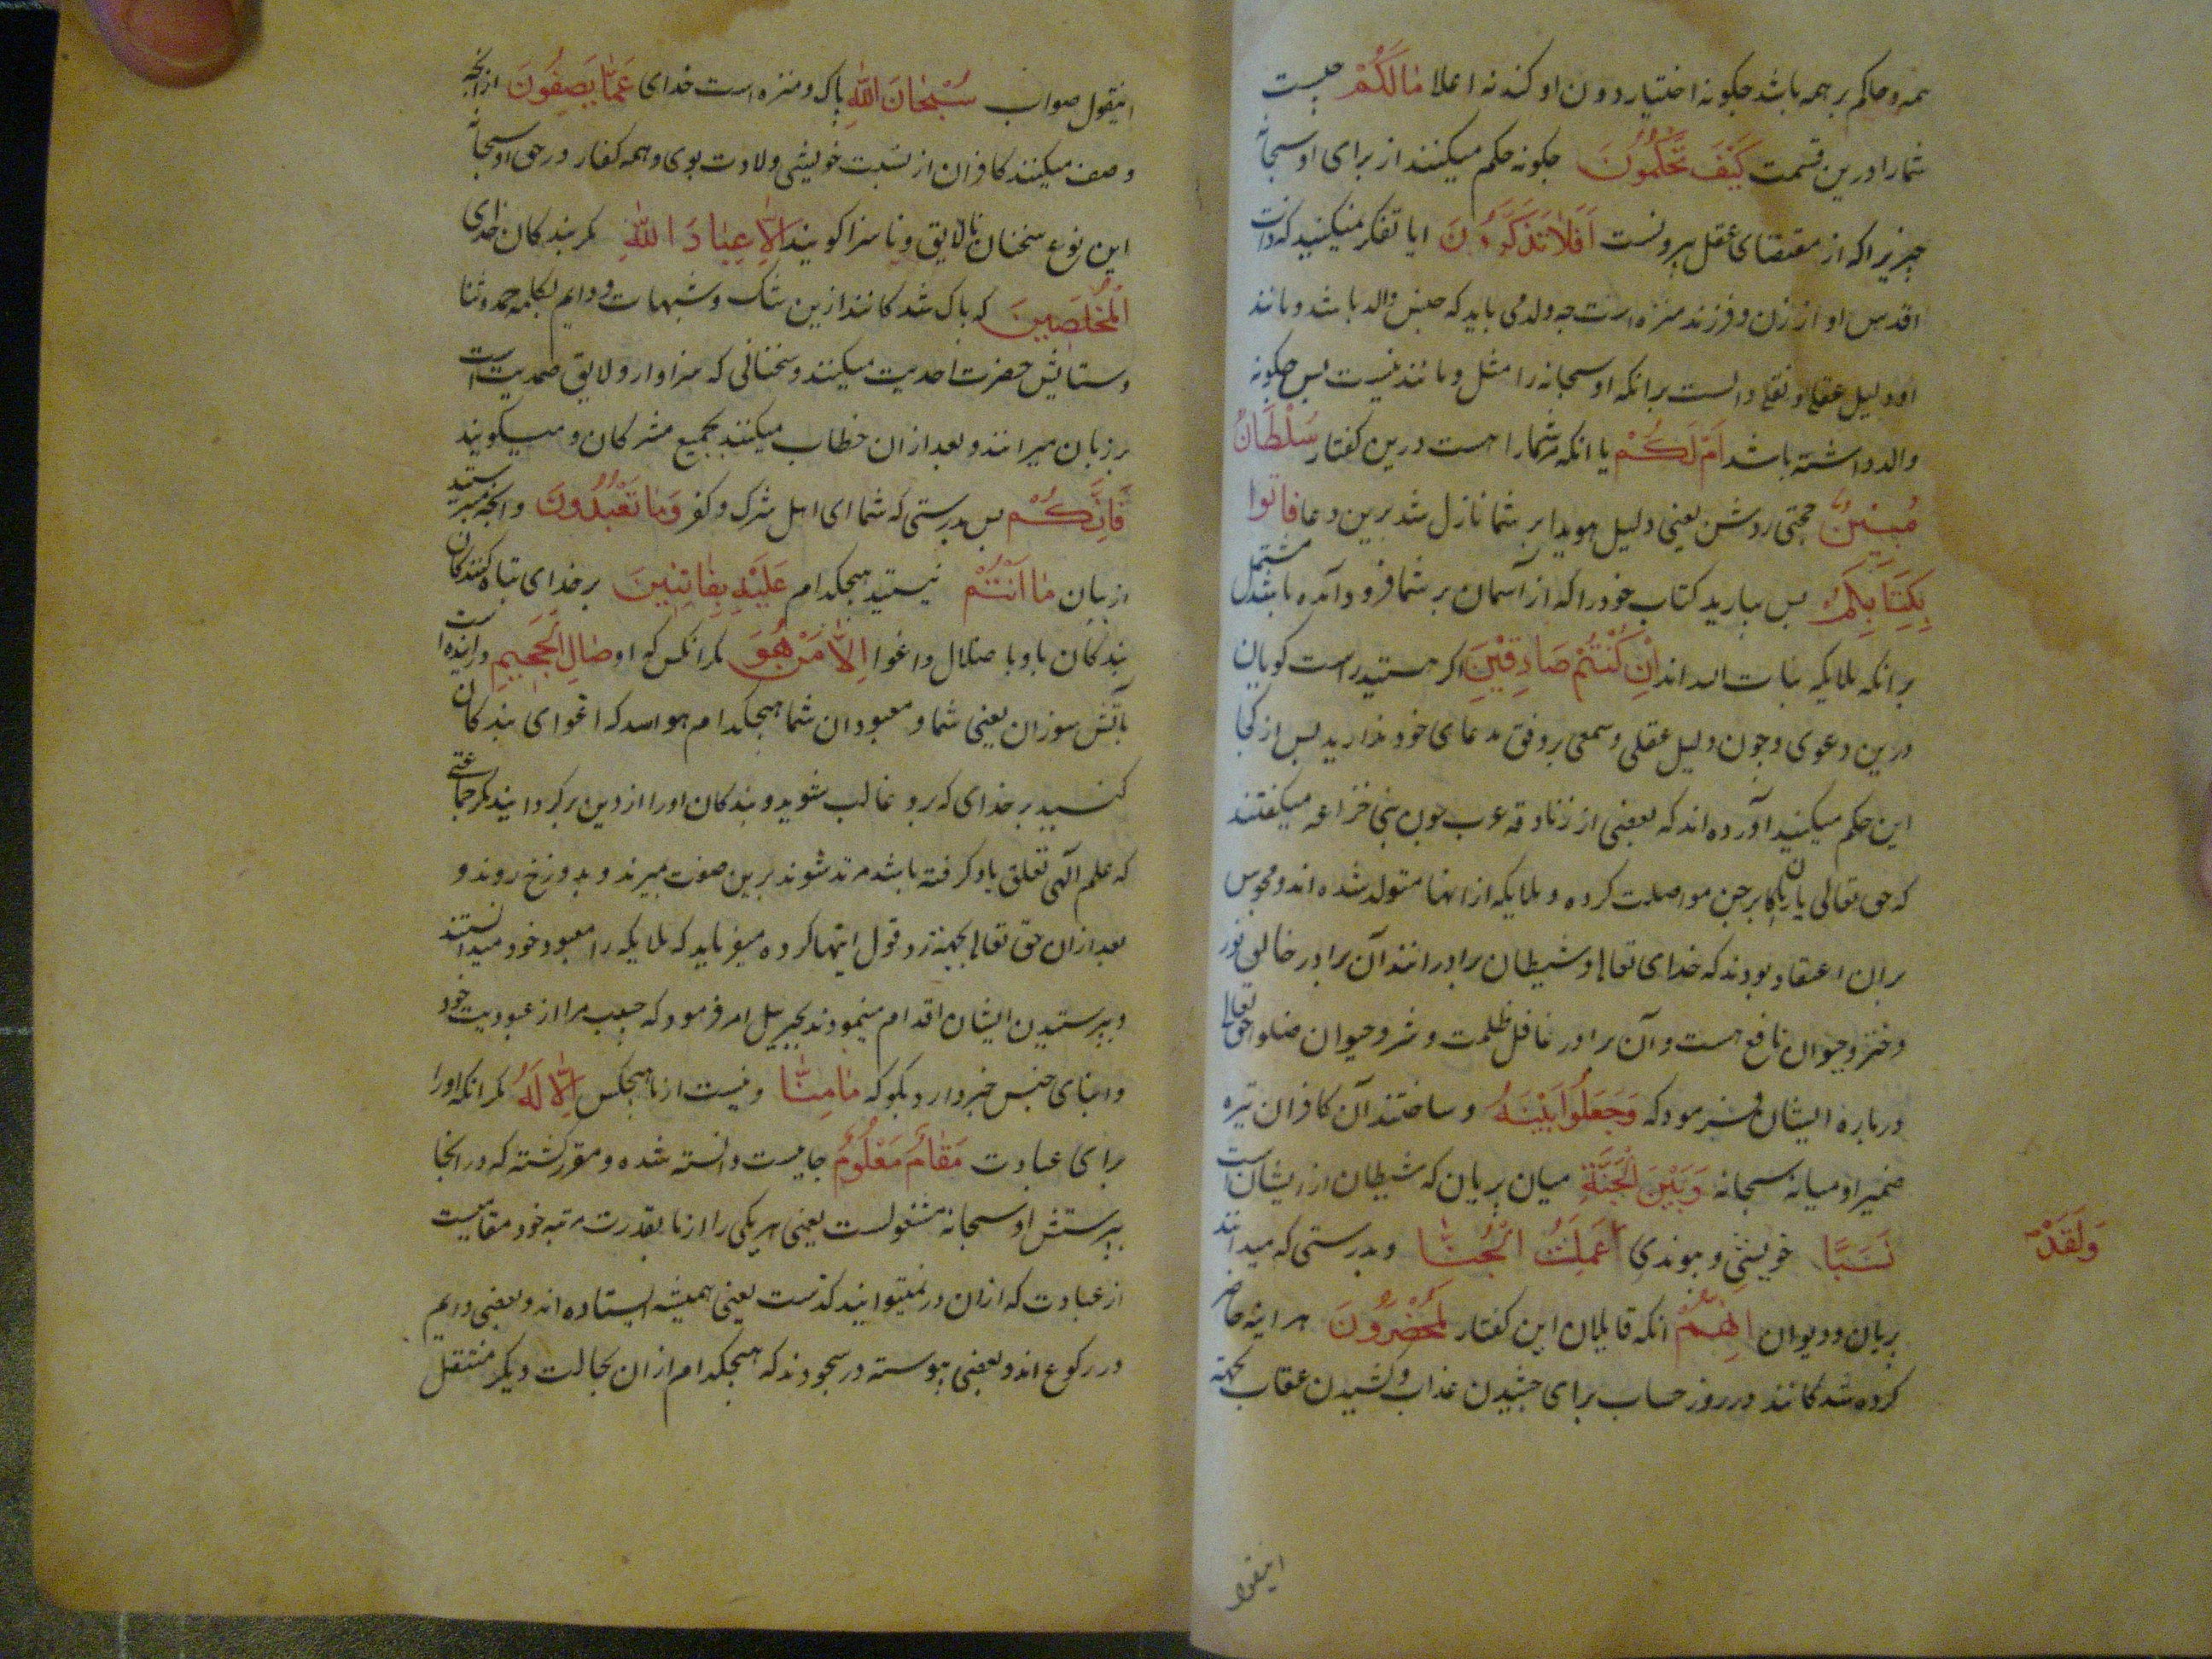 همه و حاکم بر همه باشد چکونه اختیار دون او کند نه اعلا مٰالَكُمْ چیست
شما را درین قسمت كَيْفَ تَحْكُمُونَ چکونه حکم میکنند از برای او سبحانه
چیزیرا که از مقتضای عقل بیرونست اَفَلاٰ تَذَكَّرُونَ ایا تفکر نمیکنید که ذات
اقدس او از زن و فرزند منزه است چه ولد می باید که جنس والد باشد و مانند
او و دلیل عقلی و نقلی دالست برانکه او سبحانه را مثل و مانند نیست پس چکونه
والد داشته باشد اَمْ لَكُمْ یا انکه مر شما را هست درین کفتار سُلْطَانٌ
مُبِينٌ حجتی روشن یعنی دلیل هویدا بر شما نازل شد برین دعا فاتوا
بِكِتَابِكُمْ پس بیارید کتاب خود را که از آسمان بر شما فرود آمده باشد مشتمل
برانکه ملایکه بنات الله اند اِنْ كُنْتُمْ صَادِقِيْنَ اکر هستید راست کویان
درین دعوی و چون دلیل عقلی و سمعی بر وفق مدعای خود ندارید پس از کجا
این حکم میکنید آورده اند که بعضی از زنادقه عرب چون بنی خزاعه میکفتند
که حق تعالی با پریان جن مواصلت کرده و ملایکه از انها متولد شده اند و مجوس
بران اعتقاد بودند که خدای تعالی و شیطان برادرانند آن برادر خالق نور
و خیر و حیوان نافع است و آن برادر فاعل ظلمت و شر و حیوان ضار حق تعالی
درباره ایشان فرمود که وَجَعَلُوا بَيْنَهُ و ساختند آن کافران تیره
ضمیر او میانه سبحانه وَبَيْنَ الْجِنَّةِ میان پریان که شیطان از ایشان است
نَسَبًا خویشی و پیوندی عَلِمَتُ الْجِنَّةُ و بدرستی که میدانند
وَلَقَدْ
پریان و دیوان اِنَّهُمْ انکه قایلان این کفتار لَمُحْضَرُونَ هر اینه حاضر
کرده شدکانند در روز حساب برای چشیدن عذاب و کشیدن عقاب بجهة
اینقول
اینقول صواب سُبْحَانَ اللهِ پاک و منزه است خدای عَمَّا يَصِفُونَ از انچه
وصف میکنند کافران از نسبت خویشی و ولادت بوی و همه کفار در حق او سبحانه
این نوع سخنان نالایق و ناسزا کویند اِلاّٰ عِبَادَ اللهِ مکر بندکان خدای
الْمُخْلَصِينَ که پاک شدکانند ازین شک و شبهات و دایم بکلمه حمد و ثنا
و ستایش حضرت احدیت میکنند و سخنانی که سزاوار و لایق صمدیت است
بر زبان میرانند و بعد از ان خطاب میکنند بجمیع مشرکان و میکویند
فَاِنَّكُمْ پس بدرستی که شما ای اهل شرک و کفر وَمٰا تَعْبُدُونَ و انچه میپرستید
از بتان مٰا اَنْتُمْ نیستید هیچکدام عَلَيْهِ بِفٰاتِنِينَ بر خدای تباه کنندکان
بندکان با و با ضلال و اغوا اِلاّٰ مَنْ هُوَ مکر انکس که او صٰالِ الْجَحِيمِ دراینده است
بآتش سوزان یعنی شما و معبودان شما هیچکدام که اغوای بندکان
کنید بر خدای که برو غالب شوید و بندکان او را از دین برکردانید مکر جماعتی
که علم آلهی تعلق باو کرفته باشد مرتد شوند برین صفت میرند و بدوزخ روند و
بعد از ان حق تعالی بجهة رد قول اینها کرده میفرماید که ملایکه را معبود خود میدانستند
و بپرستیدن ایشان اقدام مینمودند بجبرییل امر فرمود که حبیب مرا از عبودیت خود
و ابنای جنس خبردار و بکو که مٰا مِنّٰا و نیست از ما هیچکس اِلّٰا لَهُ مکر انکه او را
برای عبادت مَقٰامٌ مَعْلُومٌ جاییست دانسته شده و مقرر کشته که در انجا
بپرستش او سبحانه مشغولست یعنی هر یکی را از ما بقدرت مرتبه خود مقامیست
از عبادت که از ان در نمیتوانید کذشت یعنی همیشه ایستاده اند و بعضی دایم
در رکوع اند و بعضی پیوسته در سجودند که هیچکدام از ان بحالت دیکر منتقل